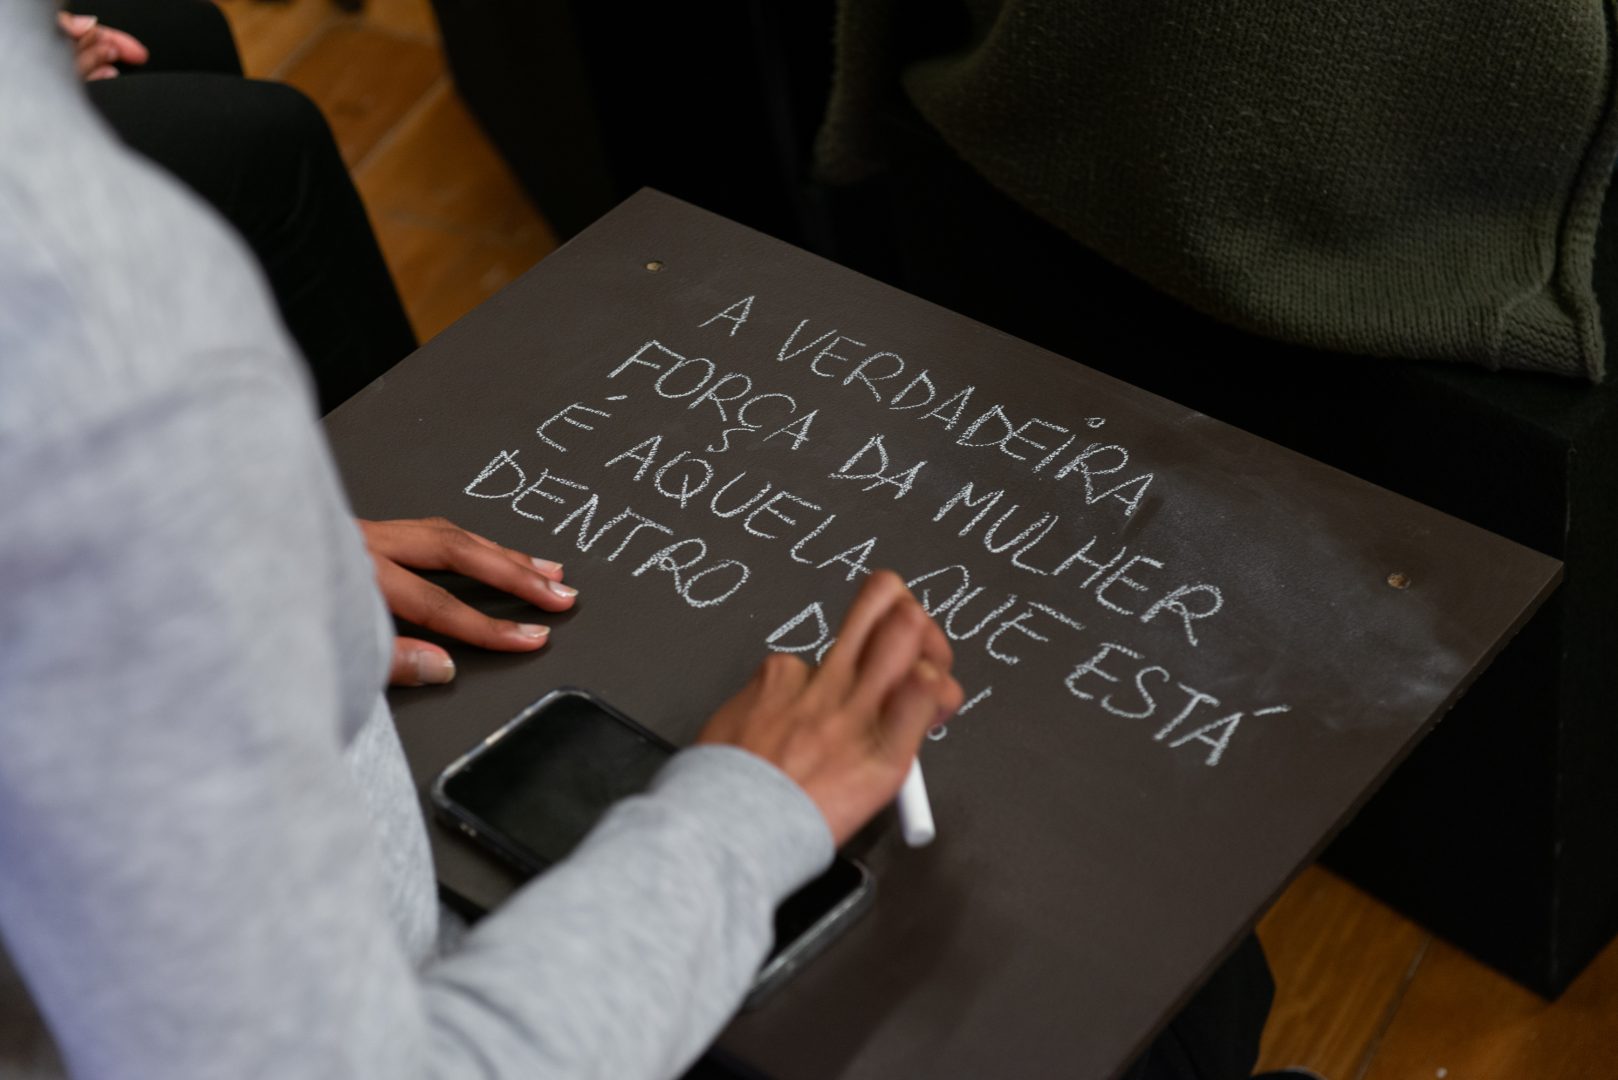 A VERDADEIRA
FORÇA DA MULHER
É AQUELA QUE ESTÁ
DENTRO !